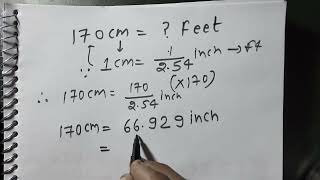 170cm = ? Feet
∵ 1cm = 1/2.54 inch → ft
∴ 170cm = 170/2.54 inch (×170)
170cm = 66.929 inch
=